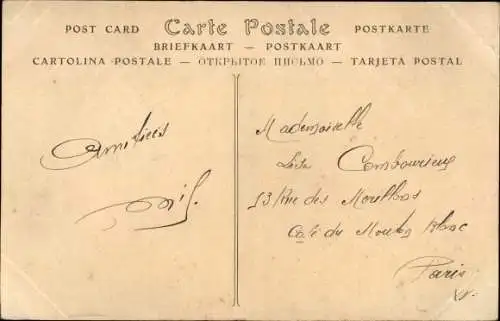 POST CARD Carte Postale POSTKARTE
BRIEFKAART — POSTKAART
CARTOLINA POSTALE — ОТКРЫТОЕ ПИСЬМО — TARJETA POSTAL
Amitiés
Mademoiselle
Combourieux
53 Rue des Morillons
Café du Mouton Blanc
Paris
XV.